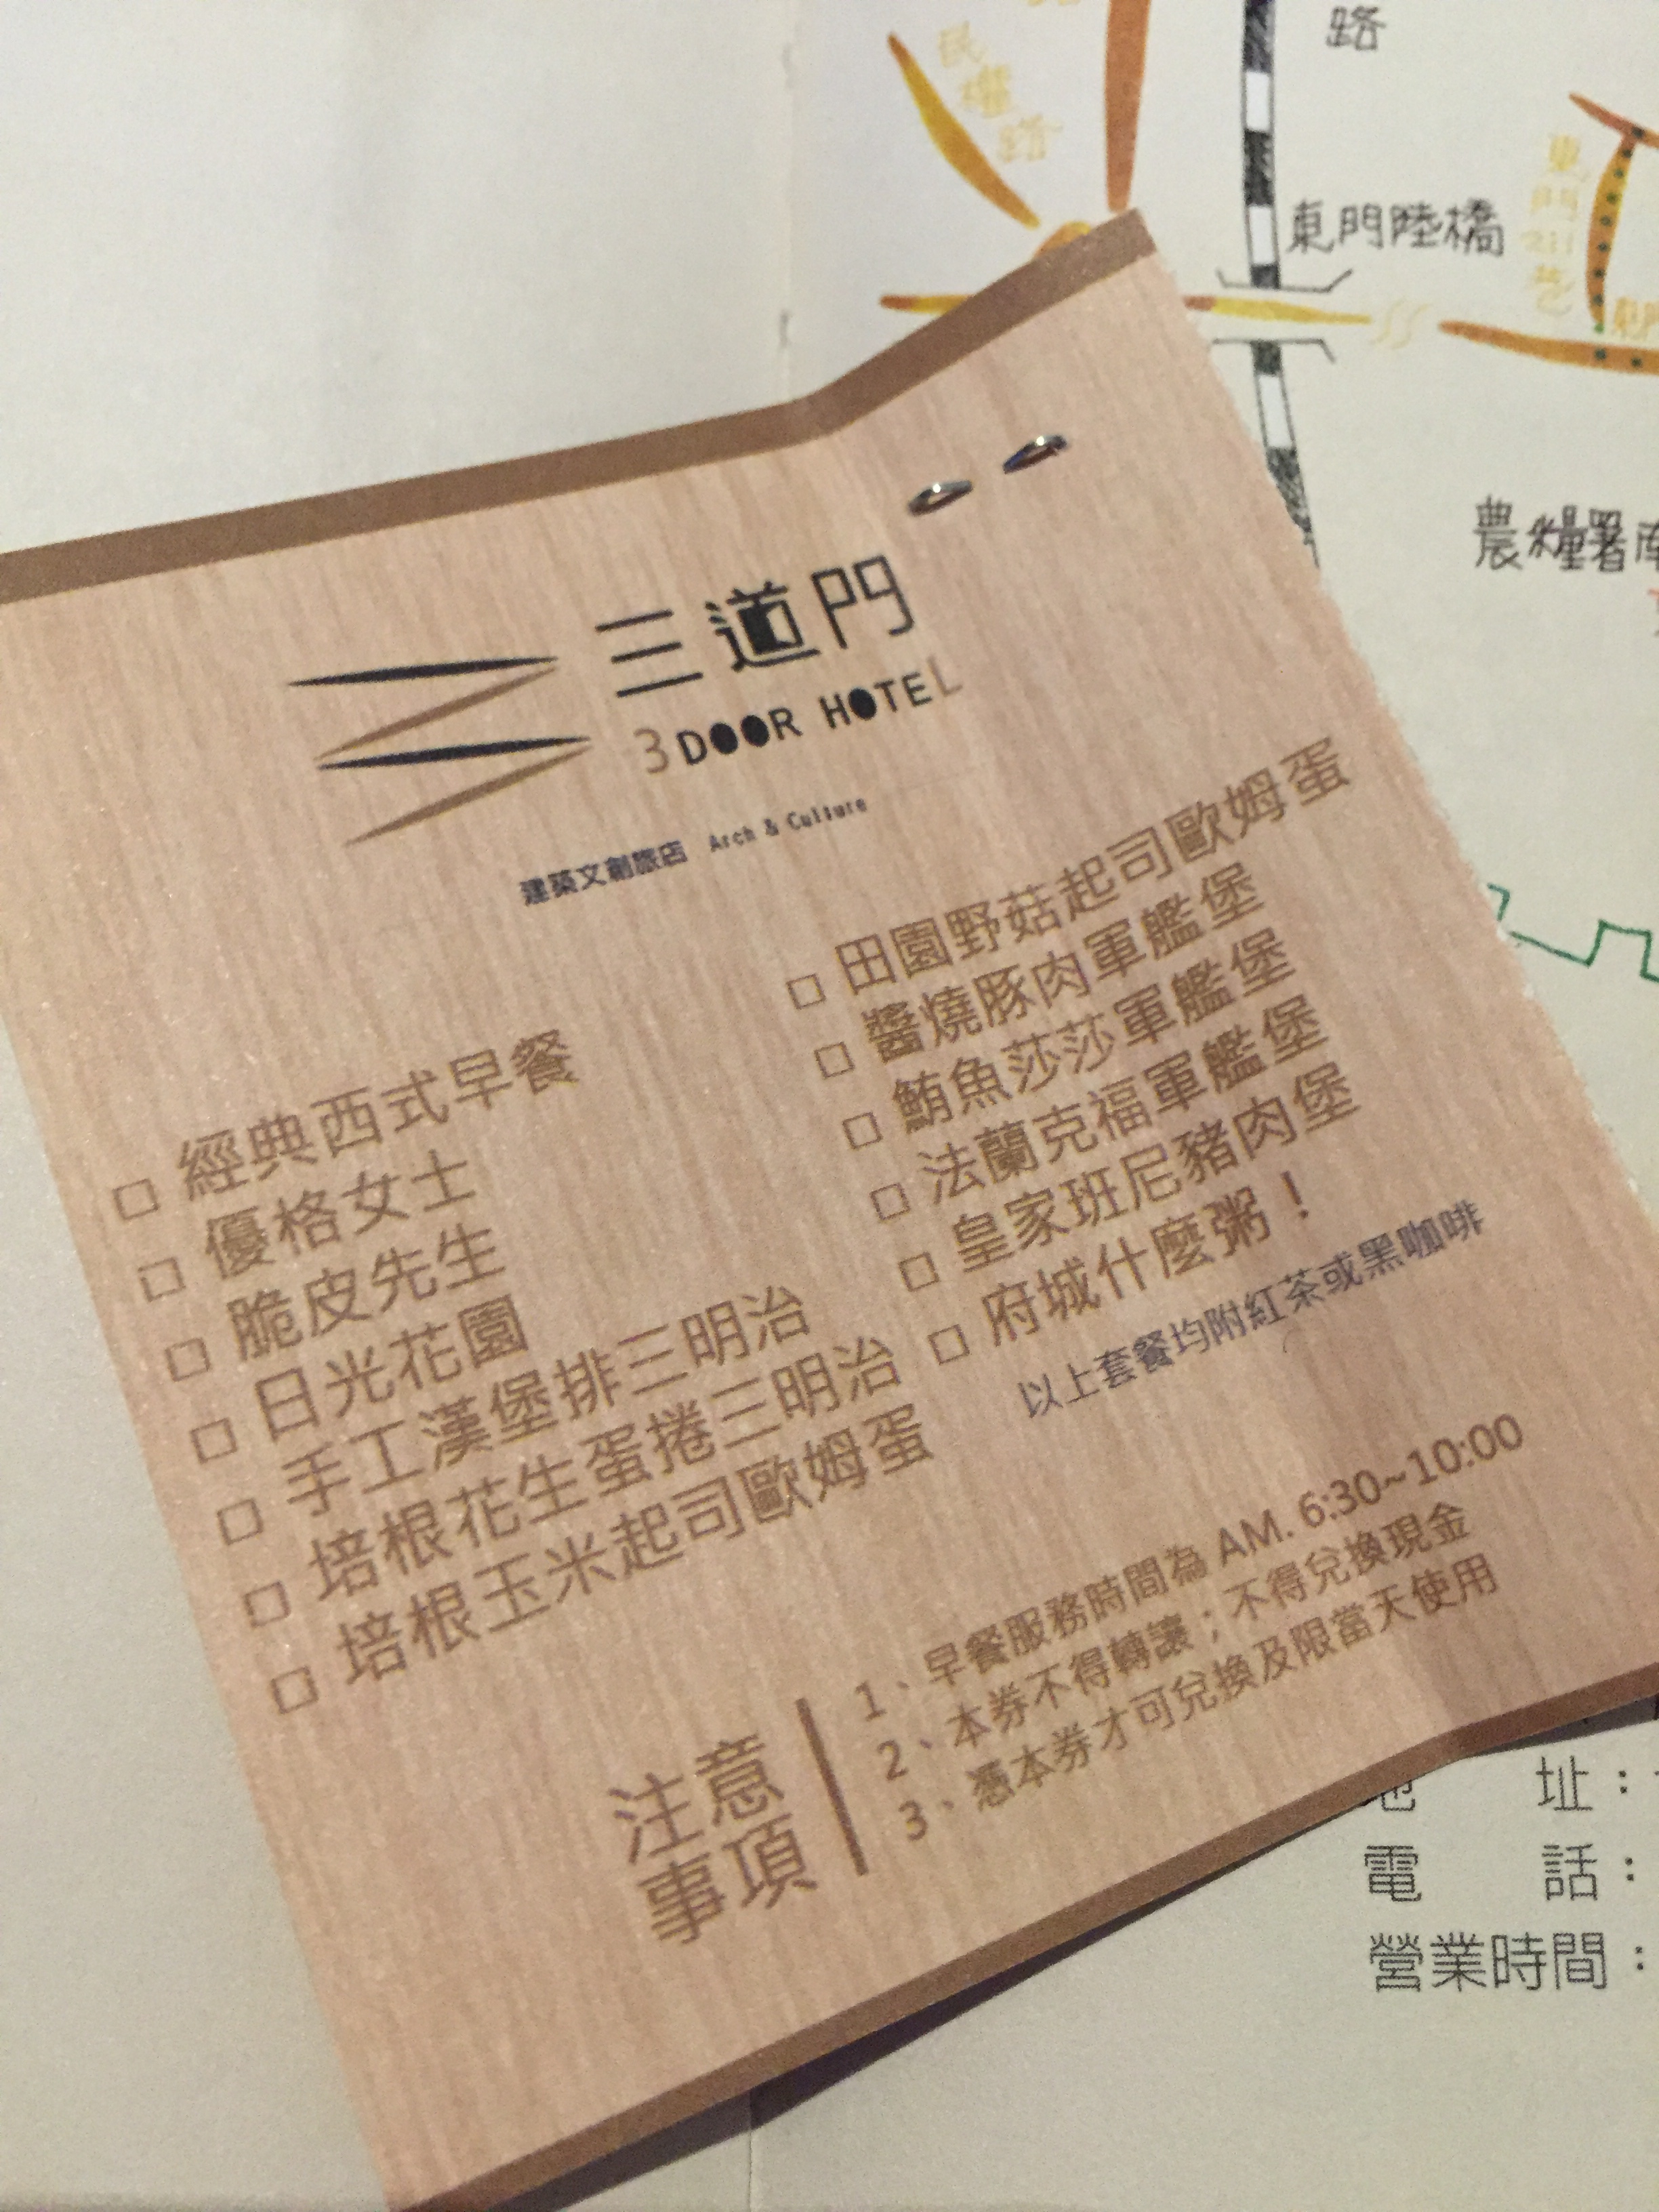 路
民權路
東門陸橋
東門
農糧署南
三道門
3 DOOR HOTEL
建築文創旅店 Arch & Culture
□ 經典西式早餐
□ 優格女士
□ 脆皮先生
□ 日光花園
□ 手工漢堡排三明治
□ 培根花生蛋捲三明治
□ 培根玉米起司歐姆蛋
□ 田園野菇起司歐姆蛋
□ 醬燒豚肉軍艦堡
□ 鮪魚莎莎軍艦堡
□ 法蘭克福軍艦堡
□ 皇家班尼豬肉堡
□ 府城什麼粥！
以上套餐均附紅茶或黑咖啡
注意
事項
1、早餐服務時間為 AM. 6:30~10:00
2、本券不得轉讓；不得兌換現金
3、憑本券才可兌換及限當天使用
地 址：
電 話：
營業時間：